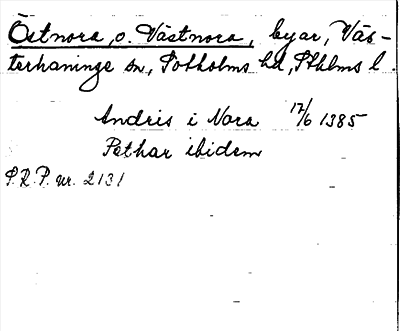 Östnora, o. Västnora, byar, Väs-
terhaninge sn, Sotholms hd, Sthlms l.
Andris i Nora 17/6 1385
Pethar ibidem
S.R.P. nr. 2131